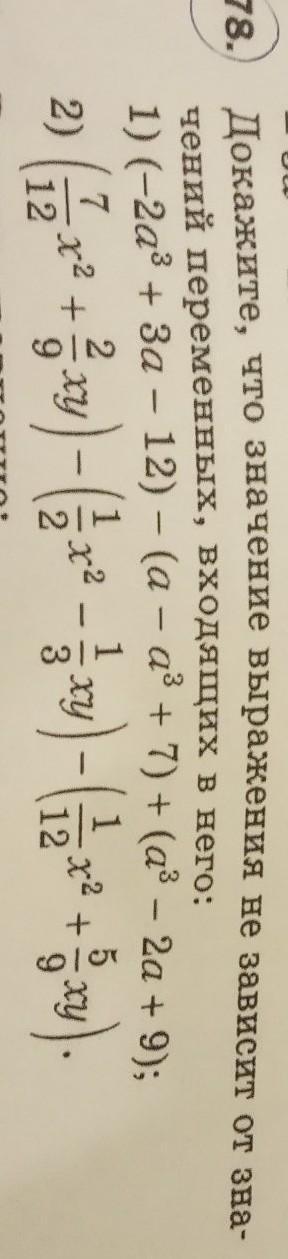 78. Докажите, что значение выражения не зависит от зна-
чений переменных, входящих в него:
1) (−2a³ + 3a − 12) − (a − a³ + 7) + (a³ − 2a + 9);
2) (7/12 x² + 2/9 xy) − (1/2 x² − 1/3 xy) − (1/12 x² + 5/9 xy).